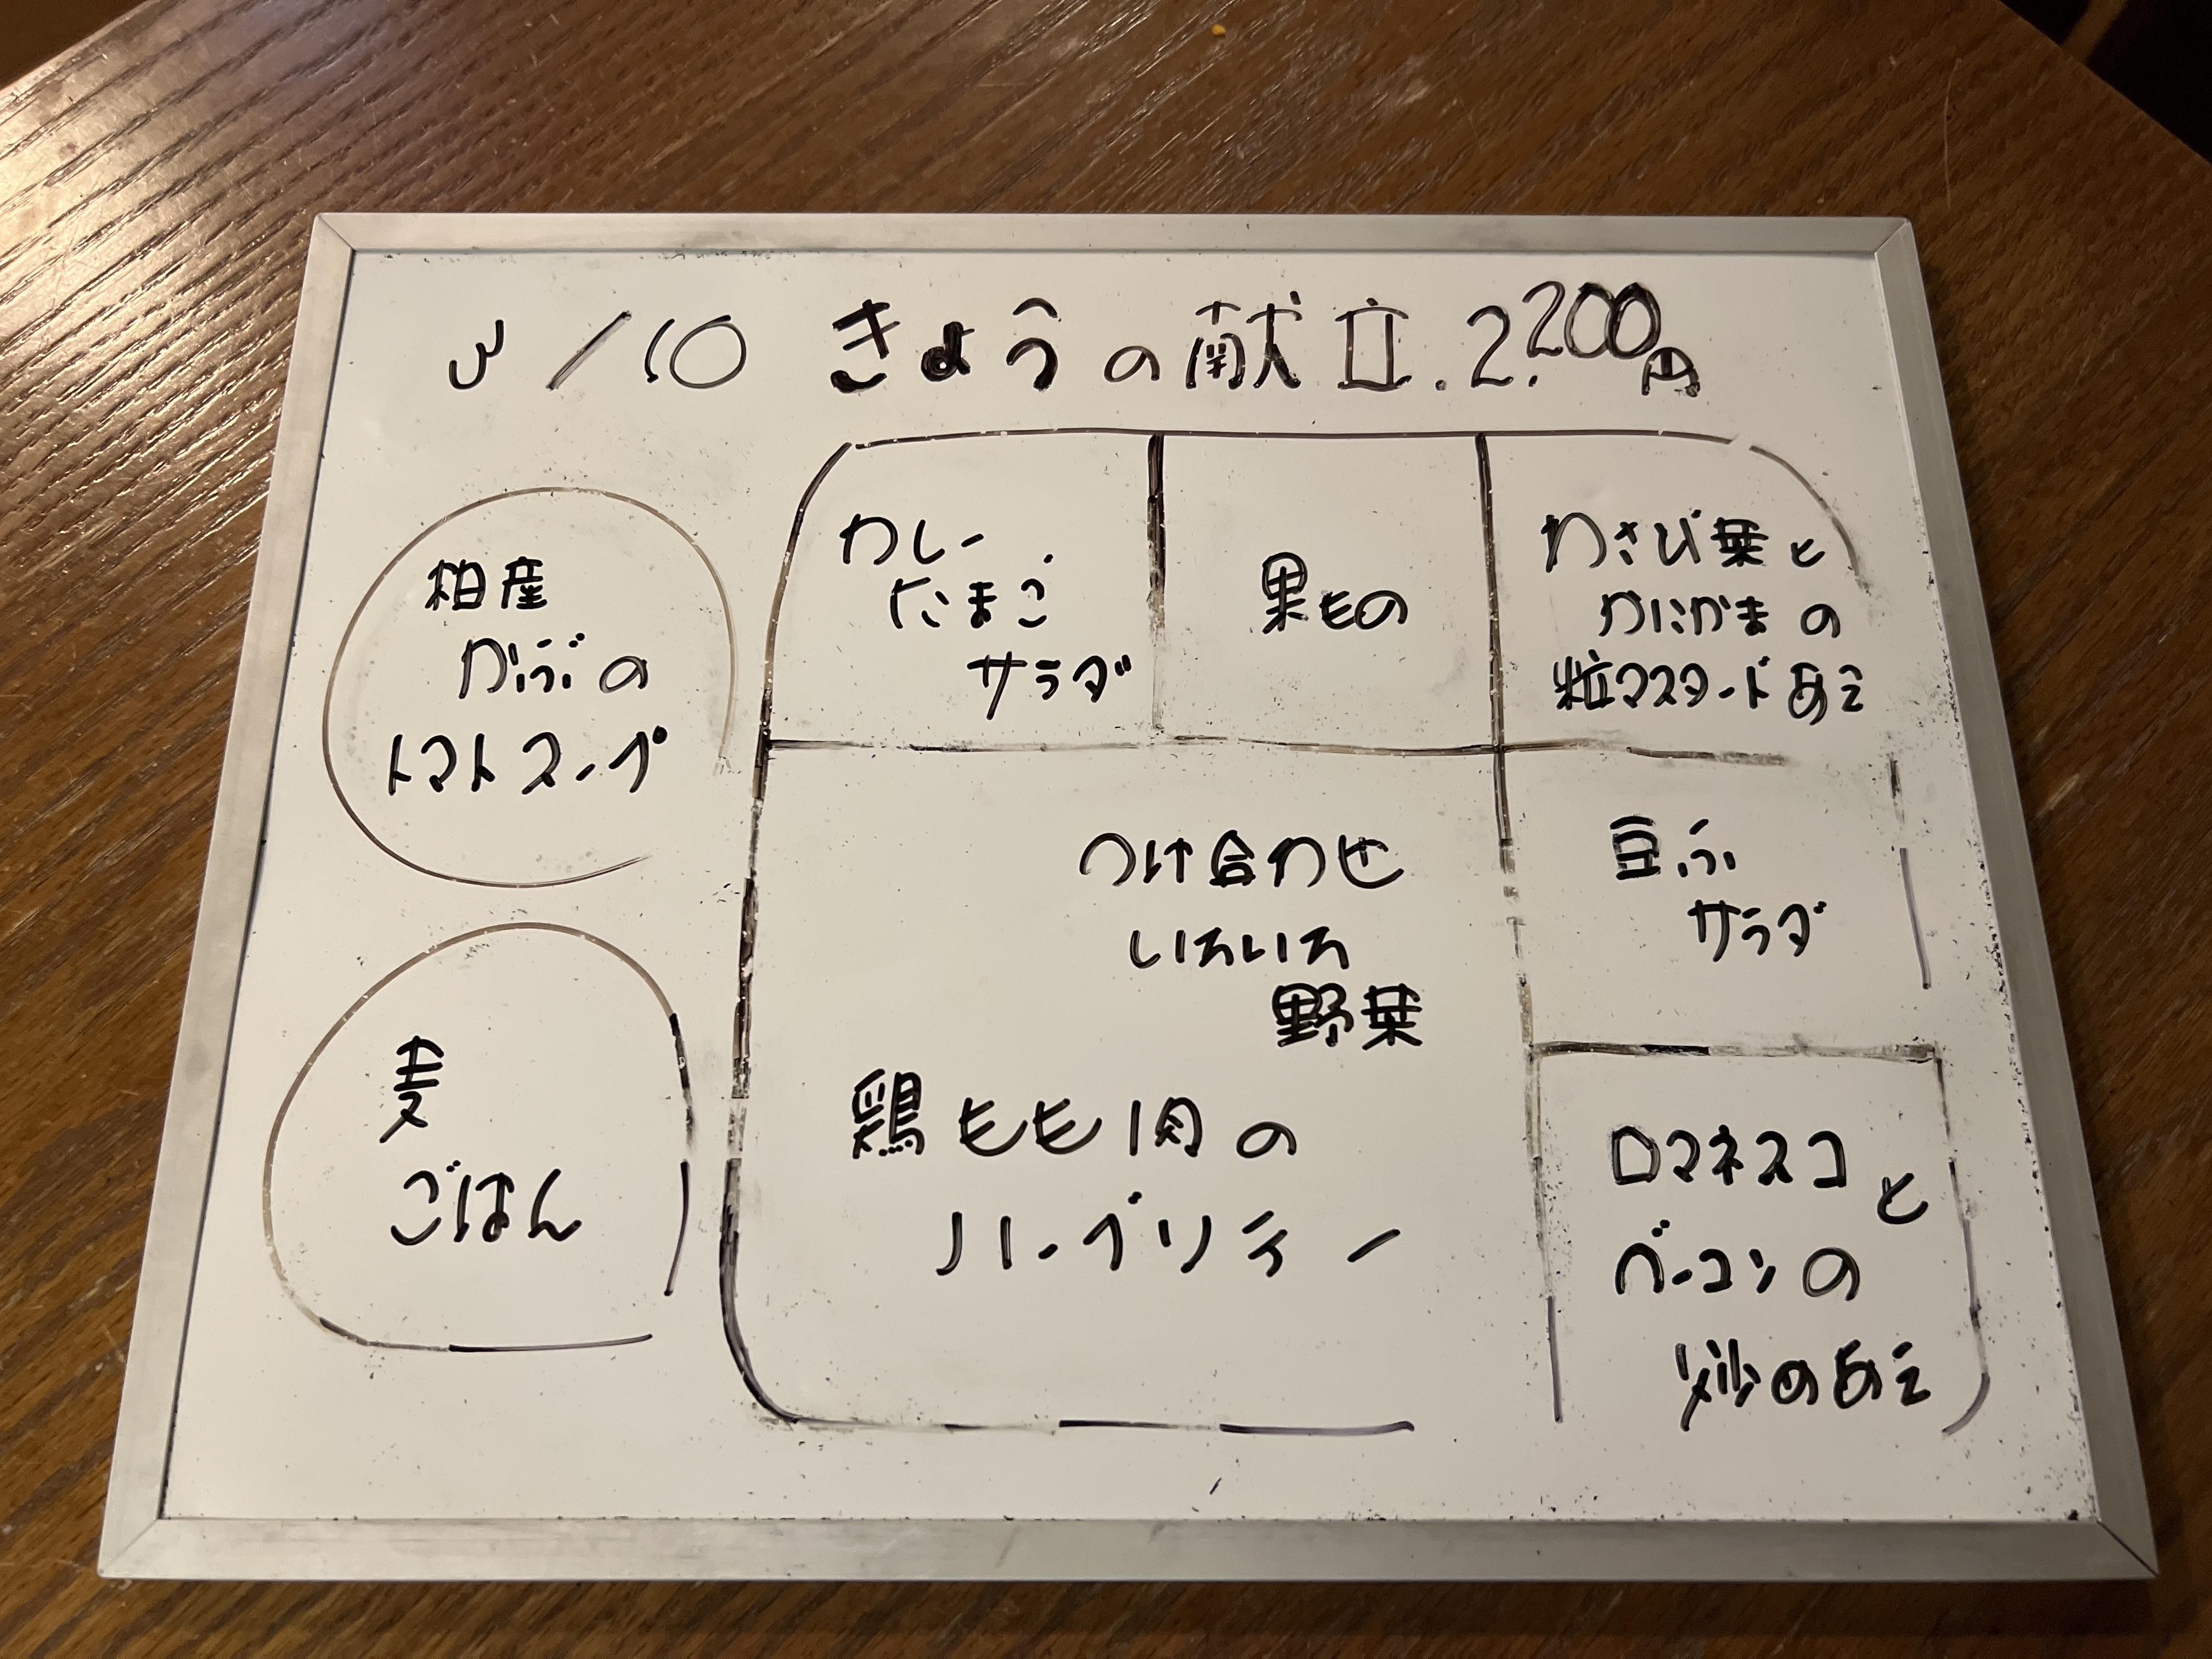 3/10 きょうの献立. 2.200円
柏産
かぶの
トマトスープ
麦
ごはん
カレー
たまご
サラダ
果もの
わさび菜と
かにかまの
粒マスタードあえ
つけ合わせ
いろいろ
野菜
鶏もも肉の
ハーブソテー
豆ふ
サラダ
ロマネスコと
ベーコンの
炒めあえ